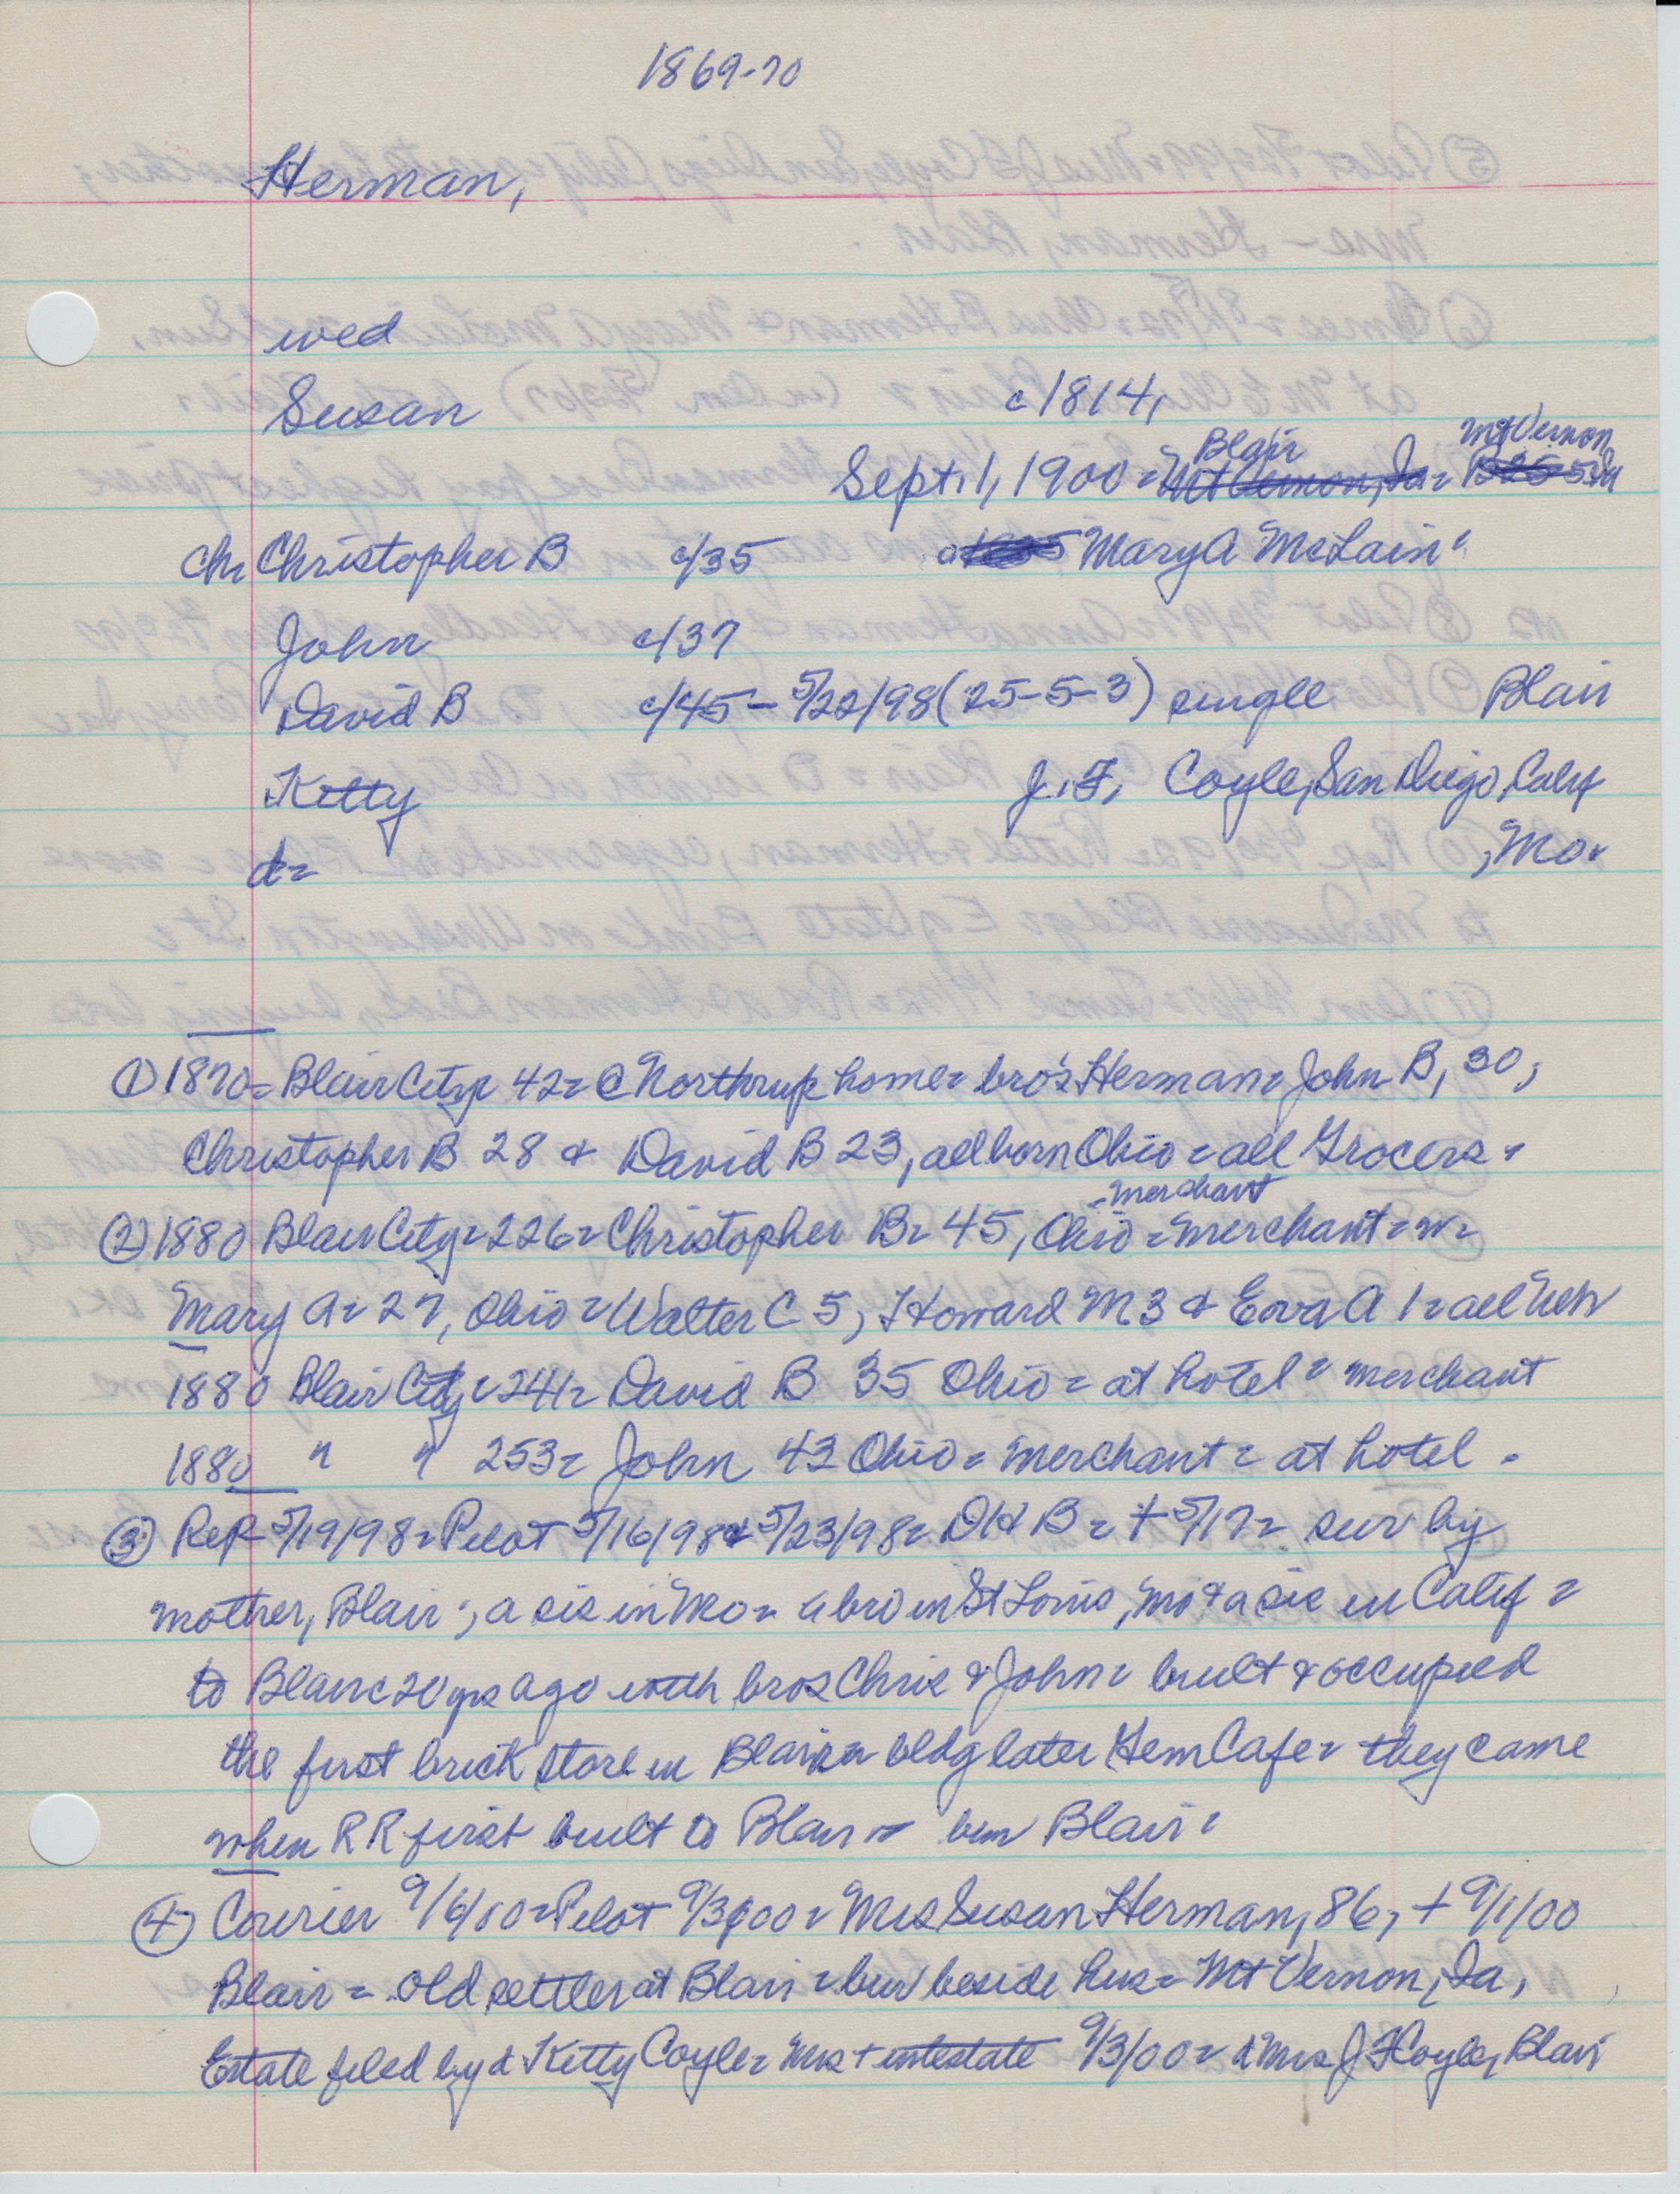 1869-70
Herman,
wed
Susan c1814,
Blair Mt Vernon
Sept. 1, 1900 = Mt Vernon, Ia = Ia
Ch Christopher B c/35 Mary A McLain =
John c/37
David B c/45 - 5/22/98 (25-5-3) single Blair
Kitty J. F. Coyle, San Diego, Calif
d= , Mo.
① 1870 = Blair City = 42 = @ Northrup home = bro's Herman = John B, 30,
Christopher B 28 & David B 23, all born Ohio = all Grocers =
merchant
② 1880 Blair City = 226 = Christopher B = 45, Ohio = merchant = w =
Mary A = 27, Ohio = Walter C 5, Howard M 3 & Eova A 1 = all Neb
1880 Blair City = 241 = David B 35 Ohio = at hotel = merchant
1880 " " 253 = John 43 Ohio = merchant = at hotel =
③ Rep 5/19/98 = Pilot 5/16/98 & 5/23/98 = D H B = + 5/17 = sur by
mother, Blair; a sis in Mo = a bro in St Louis, Mo & a sis in Calif =
to Blair c 20 yrs ago with bros Chris & John = built & occupied
the first brick store in Blair = bldg later Gem Cafe = they came
when RR first built to Blair = bur Blair =
④ Courier 9/6/00 = Pilot 9/3/00 = Mrs Susan Herman, 86, + 9/1/00
Blair = old settler at Blair = bur beside hus = Mt Vernon, Ia,
Estate filed by d Kitty Coyle = Mrs + intestate 9/3/00 = d Mrs J F Coyle, Blair